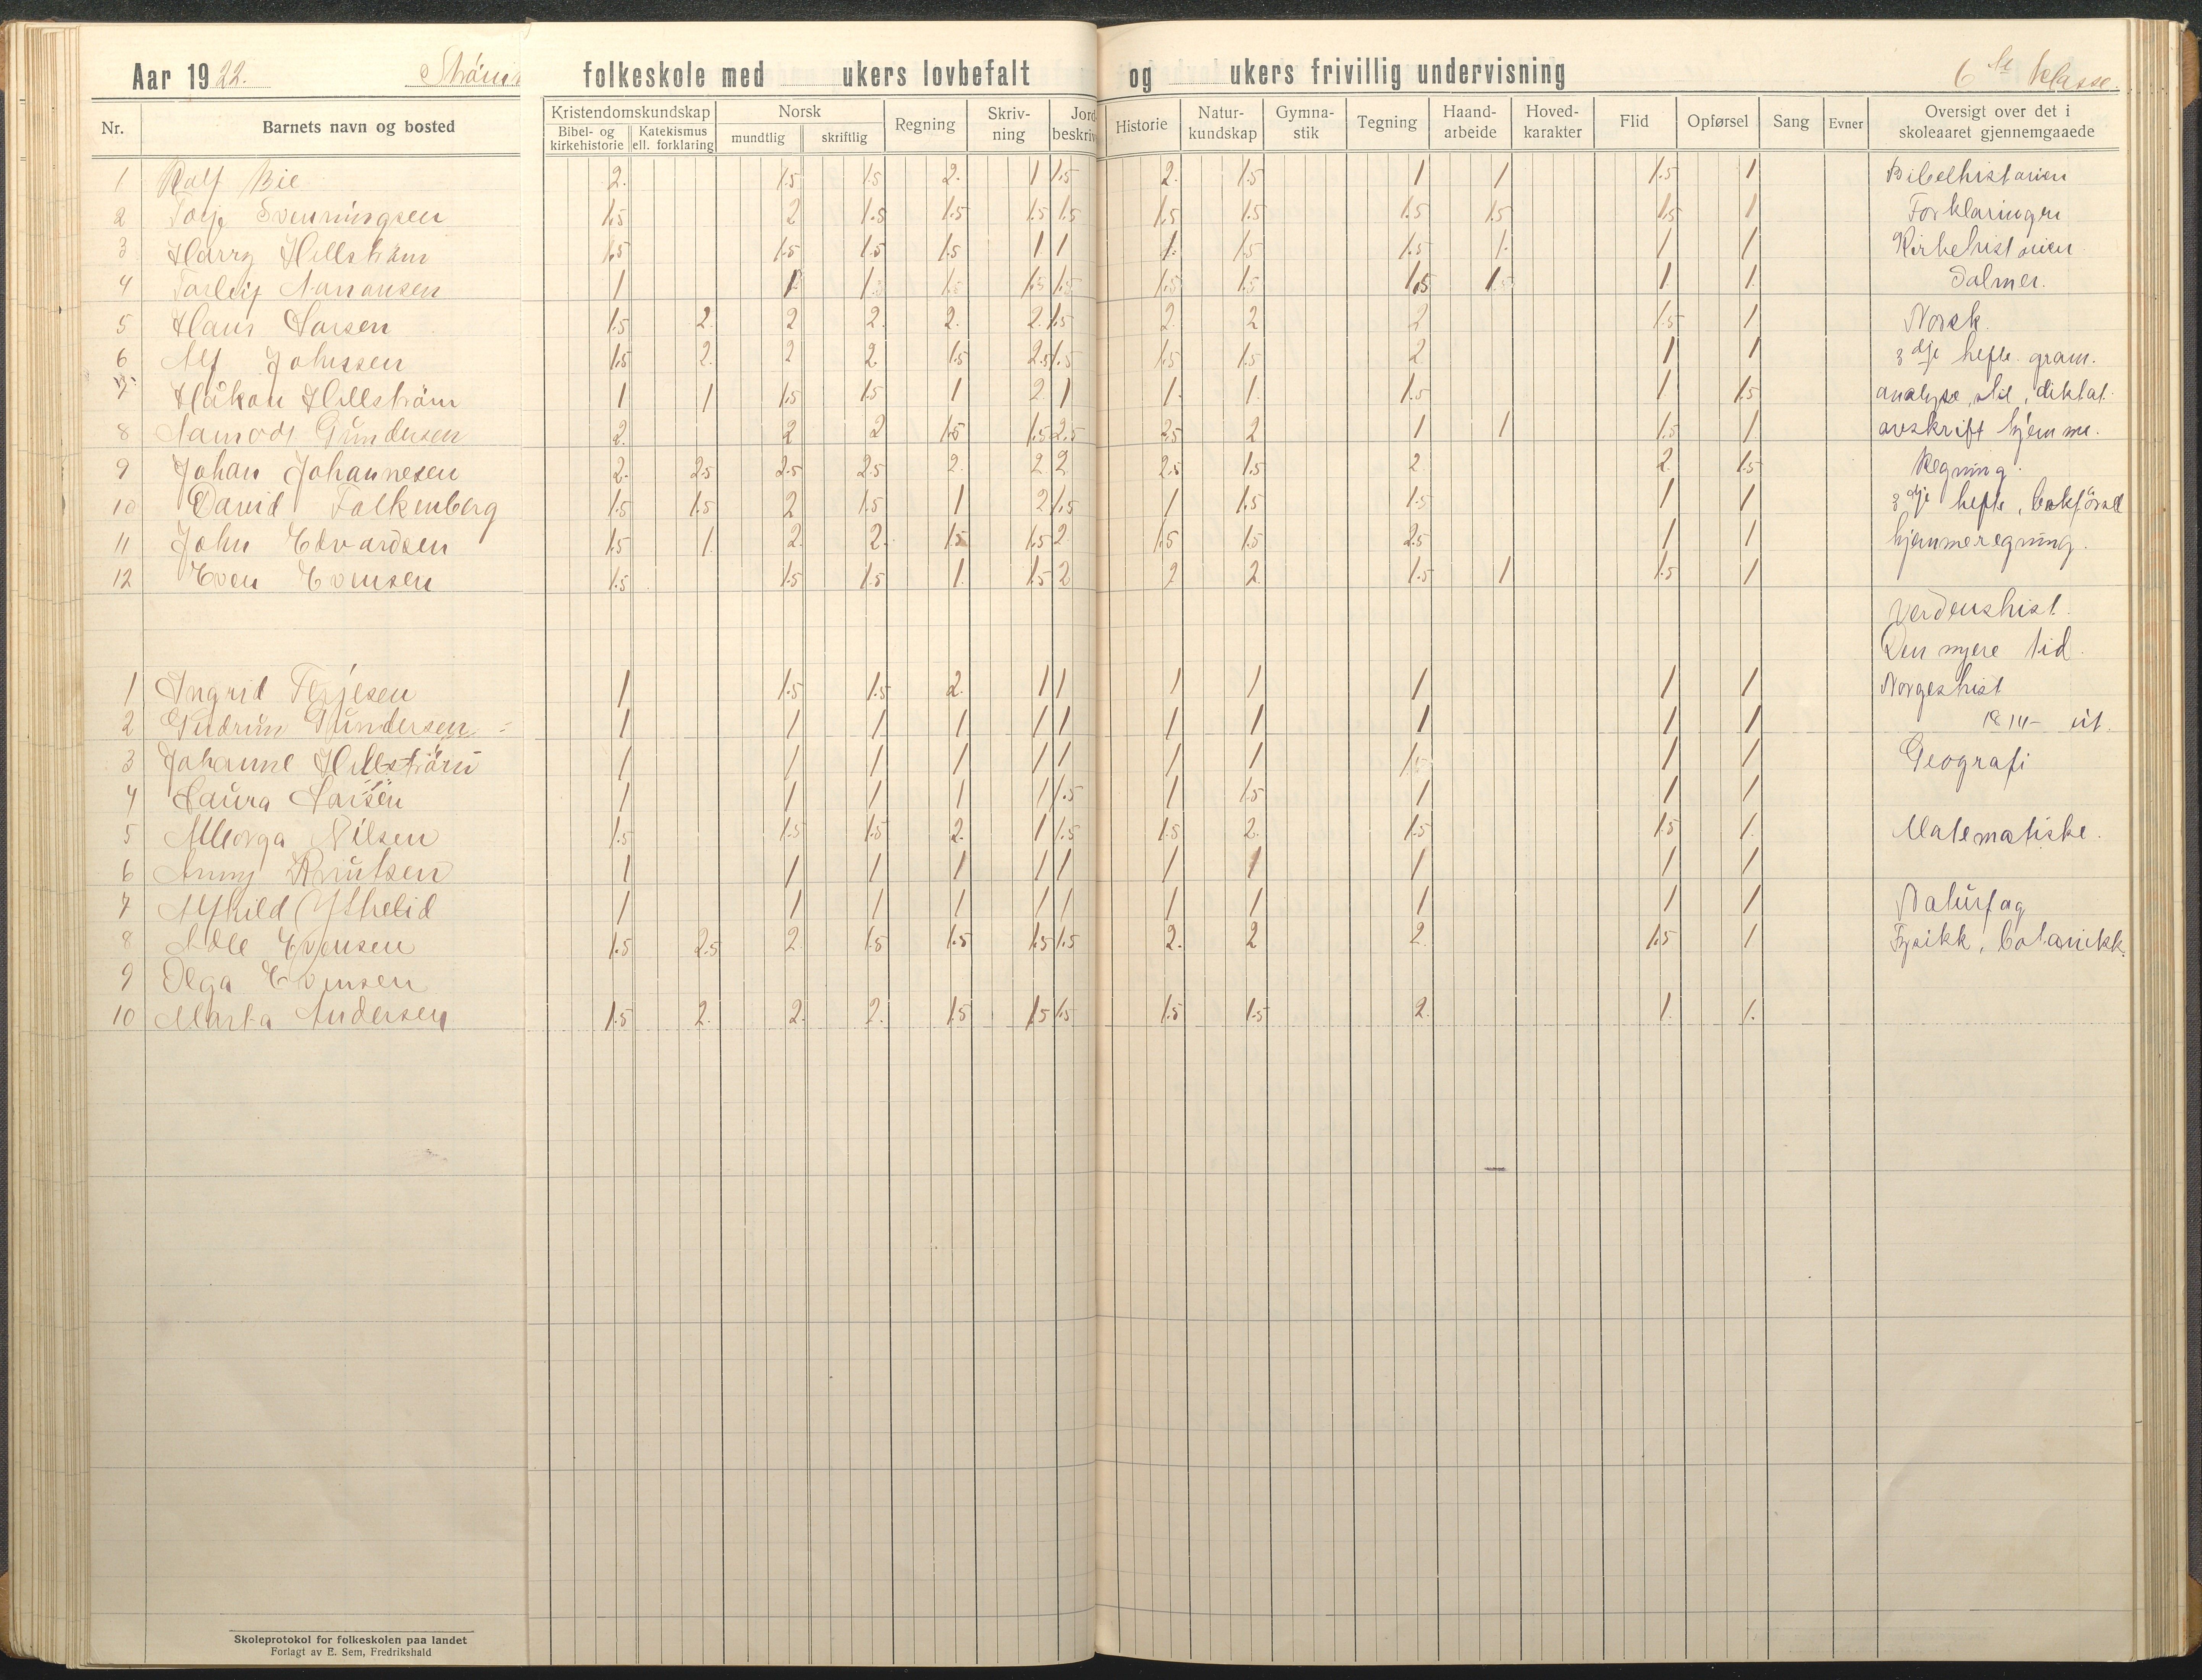 Aar 1922. Strøms folkeskole med ukers lovbefalt og ukers frivillig undervisning 6te klasse.
Nr. Barnets navn og bosted Kristendomskundskap Bibel- og kirkehistorie Katekismus ell. forklaring Norsk mundtlig skriftlig Regning Skriv-ning Jord beskriv Historie Natur-kundskap Gymna-stik Tegning Haand-arbeide Hoved-karakter Flid Opførsel Sang Evner Oversigt over det i skoleaaret gjennemgaaede
1 Rolf Bie 2. 1.5 1.5 2. 1 1.5 2. 1.5 1 1 1.5 1 Bibelhistorien
2 Torje Svenningsen 1.5 2 1.5 1.5 1.5 1.5 1.5 1.5 1.5 1.5 1.5 1 Forklaringen
3 Harry Hellström 1.5 1.5 1.5 1.5 1 1 1. 1.5 1.5 1. 1 1 Kirkehistorien
4 Torleif Aanonsen 1 1 1.5 1.5 1.5 1.5 1.5 1.5 1.5 1.5 1. 1. Salmer.
5 Hans Larsen 1.5 2. 2 2. 2. 2. 1.5 2. 2 2 1.5 1 Norsk.
6 Alf Johnsen 1.5 2. 2 2. 1.5 2.5 1.5 1.5 1.5 2 1 1 3dje hefte gram.
7 Håkon Hellström 1 1 1.5 1.5 1 2. 1 1. 1. 1.5 1 1.5 analyse, stil, diktat.
8 Aamodt Gundersen 2. 2 2 1.5 1.5 2.5 2.5 2 1 1 1.5 1. avskrift hjemme.
9 Johan Johannesen 2. 2.5 2.5 2.5 2. 2 2 2.5 1.5 2. 2. 1.5 Regning.
10 David Falkenberg 1.5 1.5 2 1.5 1 2 1.5 1 1.5 1.5 1 1 3dje hefte, bokførsel
11 John Edvardsen 1.5 1. 2. 2. 1.5 1.5 2. 1.5 1.5 2.5 1 1 hjemmeregning.
12 Even Evensen 1.5 1.5 1.5 1. 1.5 2 2 2. 1.5 1 1.5 1
Verdenshist.
Den nyere tid.
1 Ingrid Terjesen 1 1.5 1.5 2. 1 1 1 1 1 1 1 Norgeshist
2 Gudrun Gundersen 1 1 1 1 1 1 1 1 1 1 1 1814 – ut.
3 Johanne Hellström 1 1 1 1 1 1 1 1 1.5 1 1 Geografi
4 Laura Larsen 1 1 1 1 1 1.5 1 1.5 1 1 1
5 Nilsen 1.5 1.5 1.5 2. 1 1.5 1.5 2. 1.5 1.5 1. Matematiske.
6 Anny Knutsen 1 1 1 1 1 1 1 1 1 1 1
7 Alfhild 1 1 1 1 1 1 1 1 1 1 1 Naturfag
8 Adle Evensen 1.5 2.5 2. 1.5 1.5 1.5 1.5 2. 2 2. 1.5 1 Fysikk, botanikk.
9 Olga Evensen
10 Marta Andersen 1.5 2. 2. 2. 1.5 1.5 1.5 1.5 1.5 2. 1. 1.
Skoleprotokol for folkeskolen paa landet
Forlagt av E. Sem, Fredrikshald